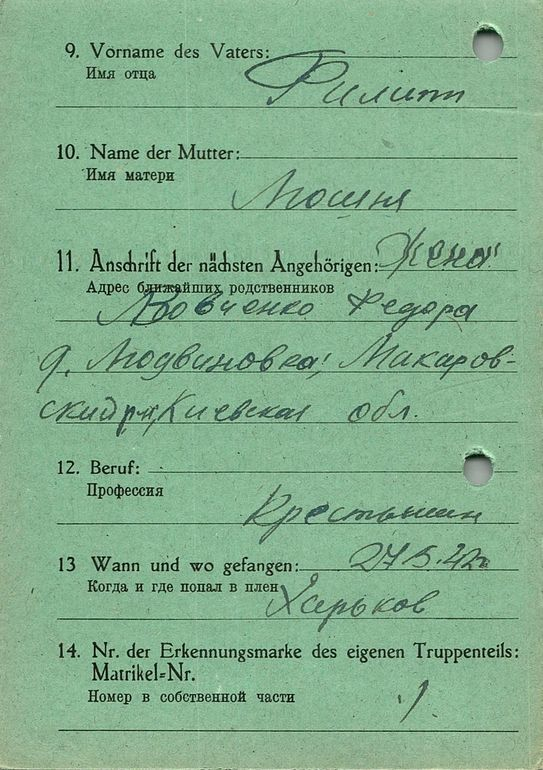 9. Vorname des Vaters:
Имя отца
Филипп
10. Name der Mutter:
Имя матери
11. Anschrift der nächsten Angehörigen: Жена:
Адрес ближайших родственников
Вовченко Федора
д. Людвиновка, Макаров-
ский р-н, Киевская обл.
12. Beruf:
Профессия
Крестьянин
13 Wann und wo gefangen: 27.5.42г.
Когда и где попал в плен Харьков
14. Nr. der Erkennungsmarke des eigenen Truppenteils:
Matrikel=Nr.
Номер в собственной части